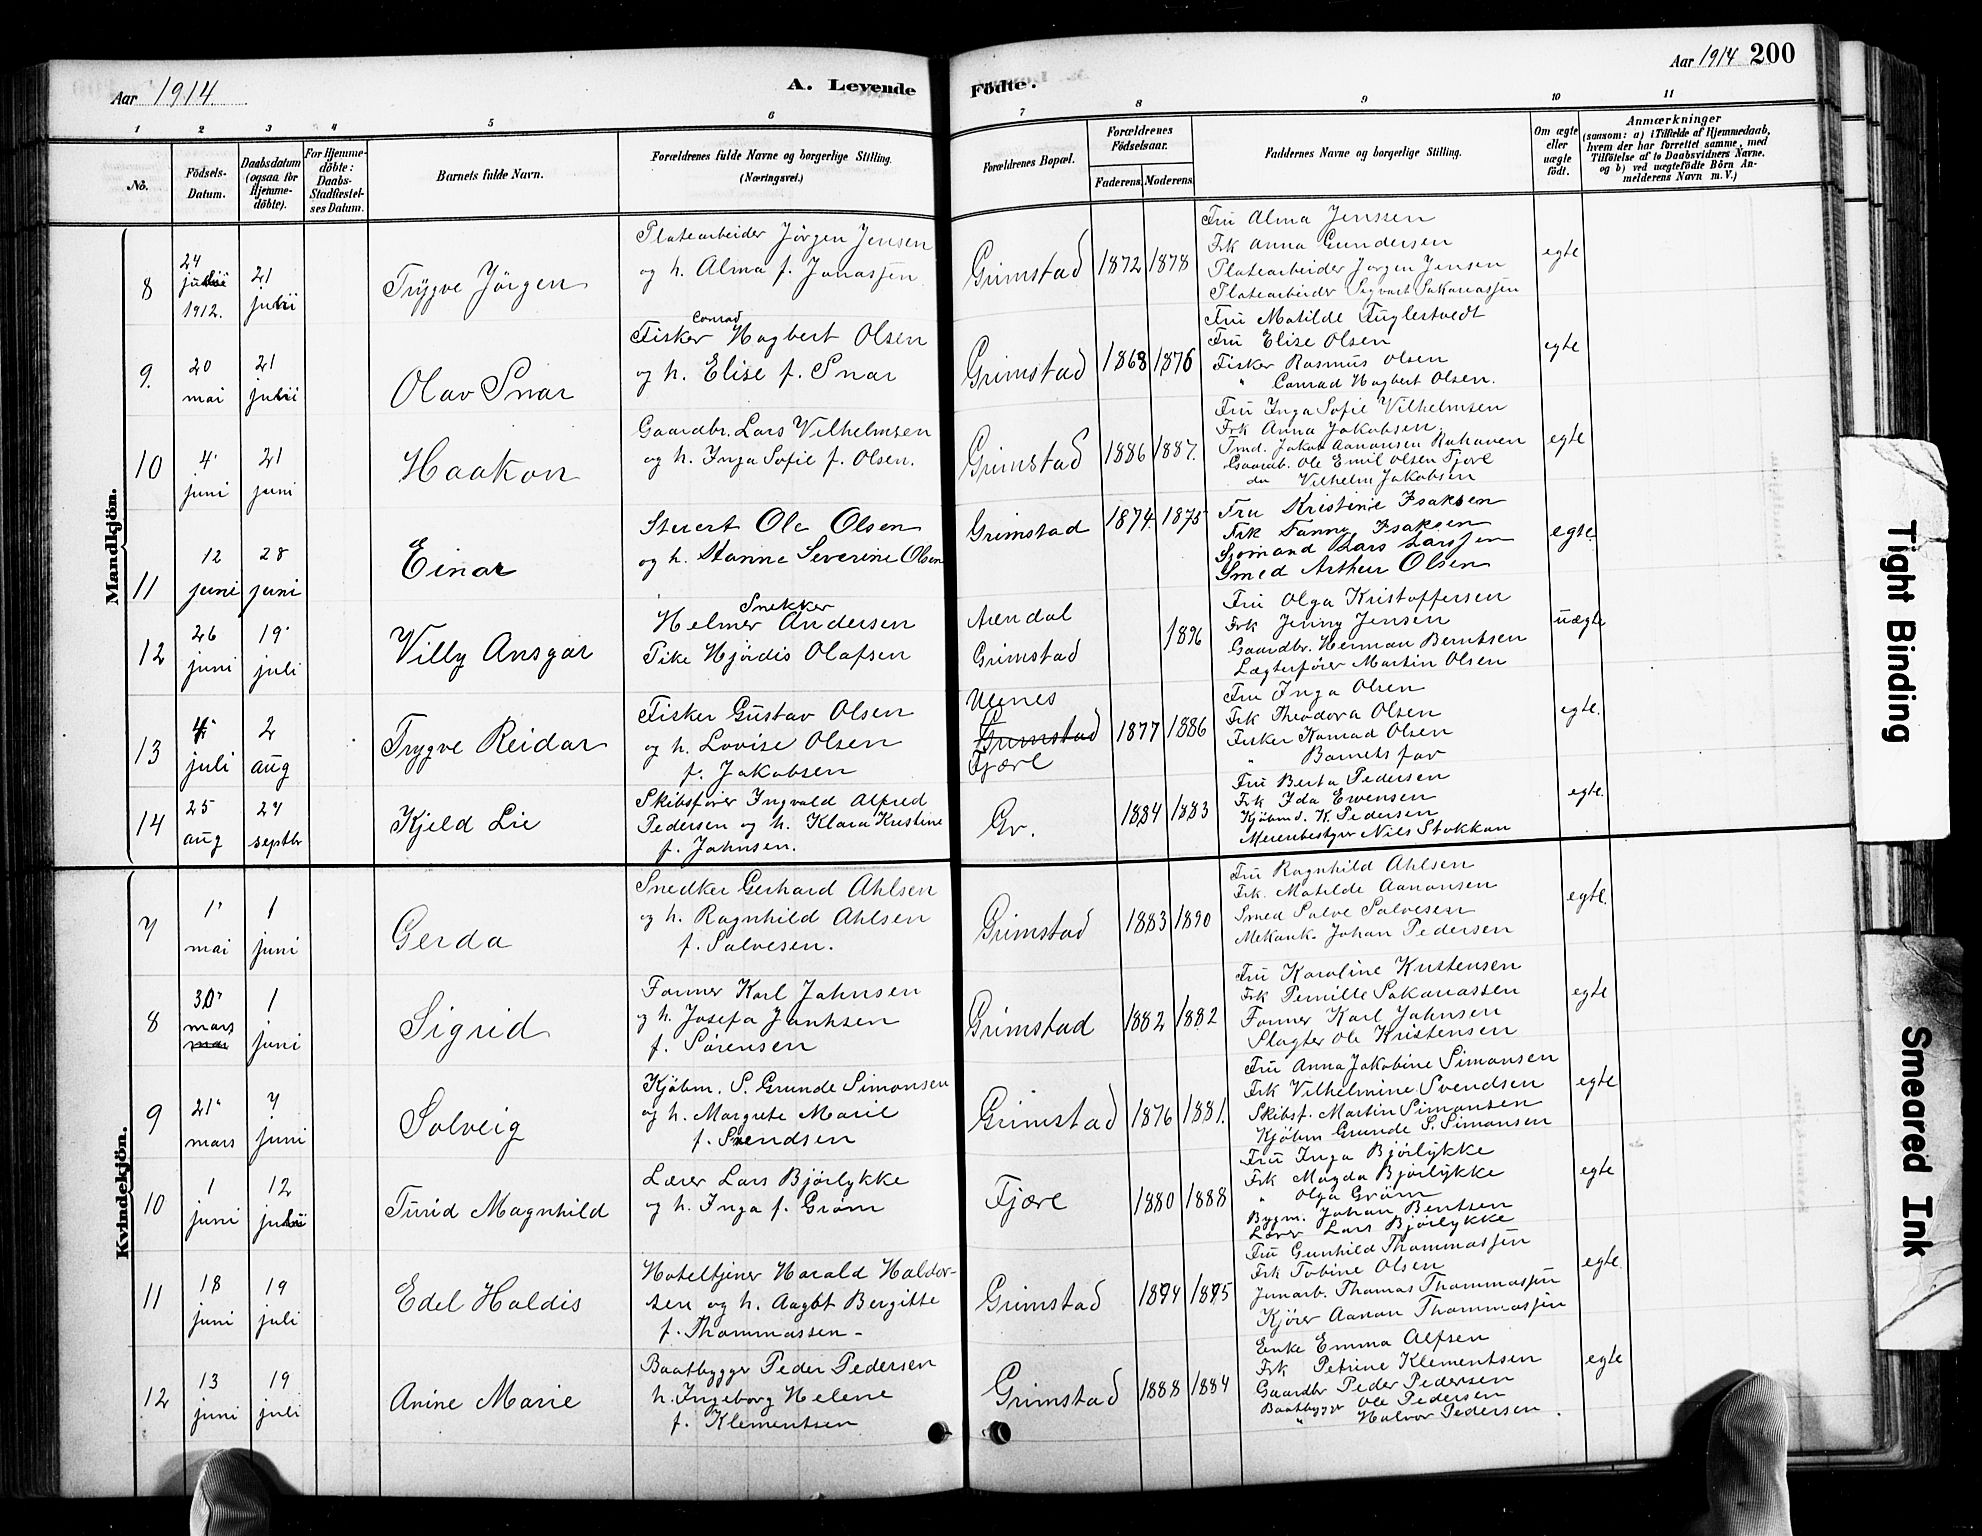 Aar 1914.
A. Levende
Födte.
Aar 1914 200
1 2 3 4 5 6 7 8 9 10 11
No.
Födsels-
Datum.
Daabsdatum
(ogsaa for
Hjemme-
döbte).
For Hjemme-
döbte:
Daabs-
Stadfæstel-
ses Datum.
Barnets fulde Navn.
Forældrenes fulde Navne og borgerlige Stilling.
(Næringsvei.)
Forældrenes Bopæl.
Forældrenes
Födselsaar.
Faderens. Moderens.
Faddernes Navne og borgerlige Stilling.
Om ægte
eller
uægte
födt.
Anmærkninger
(saasom: a) i Tilfælde af Hjemmedaab,
hvem der har forrettet samme, med
Tilföielse af to Daabsvidners Navne.
og b) ved uægtefödte Börn An-
melderens Navn m.V.)
Mandkjön.
8
24
1912.
21
Trygve Jørgen
Platearbeider Jørgen Jensen
og h. Alma f. Jonassen
Grimstad
1872 1878
Fru Alma Jenssen
Frk Anna Gundersen
Platearbeider Jørgen Jensen
Platearbeider Sigvart Sakariassen
egte
9.
20
mai
21
Olav Snar
Conrad
Fisker Hagbert Olsen
og h. Elise f. Snar
Grimstad
1868 1876
Fru Matilde Fuglestvedt
Fru Elise Olsen
Fisker Rasmus Olsen
" Conrad Hagbert Olsen.
egte
10
4
juni
21
juni
Haakon
Gaardbr. Lars Vilhelmsen
og h. Inga Sofie f. Olsen.
Grimstad
1886 1887.
Fru Inga Sofie Vilhelmsen
Frk Anna Jakobsen
Tmd. Jakob Aanonsen
Gaardb. Ole Emil Olsen Fjære
do Vilhelm Jakobsen
egte
11
12
juni
28
juni
Einar
Stuert Ole Olsen
og h. Hanna Severine Olsen
Grimstad
1874. 1875
Fru Kristine Isaksen
Frk Fanny Isaksen
Sjømand Lars Larssen
Smed Arthur Olsen
egte
12
26
juni
19
juli
Villy Ansgar
Snekker
Helmer Andersen
Pike Hjørdis Olafsen
Arendal
Grimstad
1896
Fru Olga Kristoffersen
Frk Jenny Jensen
Gaardbr. Herman Berntsen
Lægterfører Martin Olsen
uægte
13
4
juli
2
aug
Trygve Reidar
Fisker Gustav Olsen
og h. Lovise Olsen
f. Jakobsen
Grimstad
Fjære
1877 1886
Fru Inga Olsen
Frk Theodora Olsen
Fisker Konrad Olsen
" Barnets far
egte.
14
25
aug
27
septbr
Kjeld Lie
Skibsfører Ingvald Alfred
Pedersen og h. Klara Kristine
f. Jahnsen.
Gr.
1884 1883
Fru Berta Pedersen
Frk Ida Evensen
Kjøbmd. K. Pedersen
Meieribestyrer Nils Stokkan
egte.
Kvindekjön.
7
1
mai
1
juni
Gerda
Snedker Gerhard Ahlsen
og h. Ragnhild Ahlsen
f. Salvesen.
Grimstad
1883 1890
Fru Ragnhild Ahlsen
Frk. Matilde Aanonsen
Smed Salve Salvesen
Mekank. Johan Pedersen
egte.
8
30
mars
mai
1
juni
Sigrid
Former Karl Jahnsen
og h. Josefa Jahnsen
f. Sørensen
Grimstad
1882 1882
Fru Karoline Kristensen
Frk Pernille Sakariassen
Former Karl Jahnsen
Slagter Ole Kristensen
egte
9
21
mars
7
juni
Solveig
Kjøbm. S. Grunde Simonsen
og h. Margrete Marie
f. Svendsen
Grimstad
1876 1881.
Fru Anna Jakobine Simonsen
Frk Vilhelmine Svendsen
Skibsf. Martin Simonsen
Kjøbm Grunde S. Simonsen
egte
10
1
juni
12
Turid Magnhild
Lærer Lars Bjørlykke
og h. Inga f. Grøm
Fjære
1880 1888
Fru Inga Bjørlykke
Frk Magda Bjørlykke
" Olga Grøm
Bygm. Johan Bentsen
Lærer Lars Bjørlykke
egte
11
18
juni
19
juli
Edel Haldis
Hoteltjener Harald Haldor-
sen og h. Aagot Bergitte
f. Thommassen -
Grimstad
1894 1895
Fru Gunhild Thommassen
Frk Tobine Olsen
Jernarb. Thomas Thommassen
Kjører Aanon Thommassen
egte.
12
13
juni
19
juli
Anine Marie
Baatbygger Peder Pedersen
h. Ingeborg Helene
f. Klementsen
Grimstad
1888 1884
Enke Emma Alfsen
Frk Petrine Klementsen
Gaardbr Peder Pedersen
Baatbygger Ole Pedersen
" Halvor Pedersen.
egte
Tight Binding
Smeared Ink